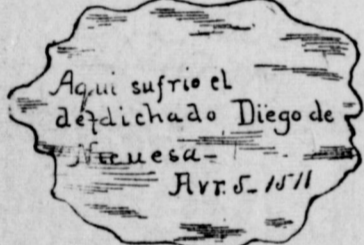 Aqui sufrio el
desdichado Diego de
Nicuesa-
Avr. 5-1511